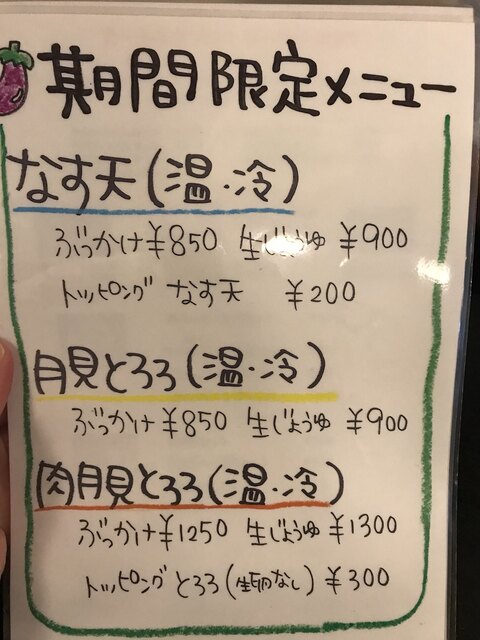 期間限定メニュー
なす天(温・冷)
ぶっかけ¥850 生じょうゆ ¥900
トッピング なす天 ¥200
月見とろろ(温・冷)
ぶっかけ¥850 生じょうゆ ¥900
肉月見とろろ(温・冷)
ぶっかけ¥1250 生じょうゆ ¥1300
トッピング とろろ(生卵なし) ¥300